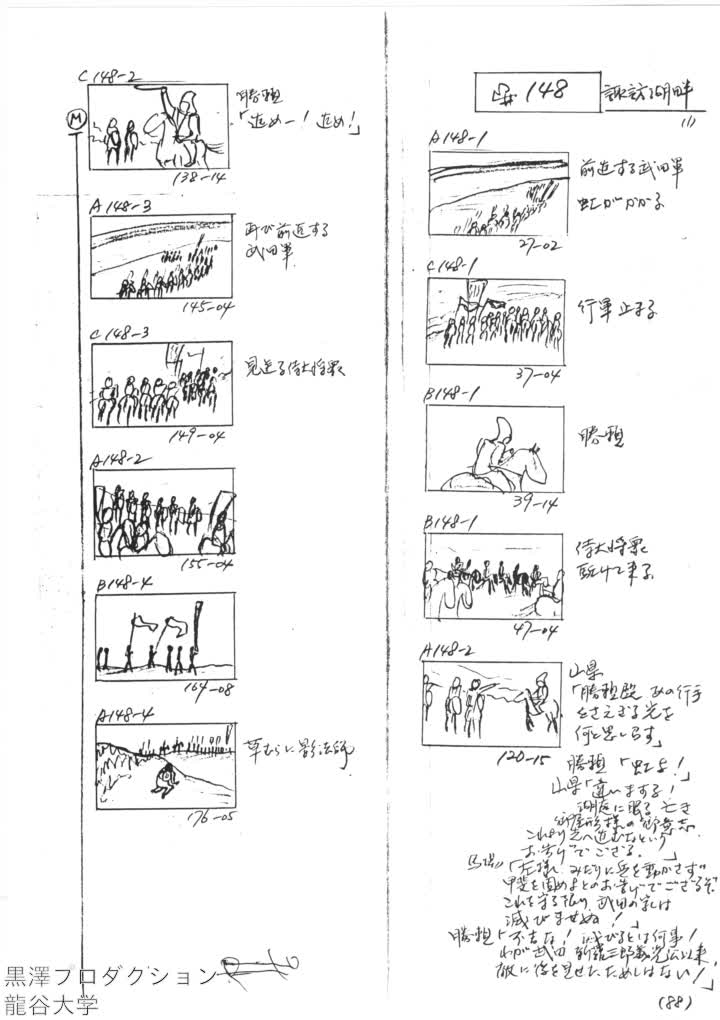 #148
諏訪湖畔
(1)
A148-1
前進する武田軍
虹がかかる
27-02
C148-1
行軍止まる
37-04
B148-1
勝頼
39-14
B148-1
侍大将衆
駈けて来る
47-04
A148-2
120-15
山県
「勝頼殿 あの行手
をさえぎる光を
何と思しめす」
勝頼「虹よ!」
山県「違いまする!
湖底に眠る 亡き
御屋形様の御意志
これより先へ進むなという
お告げでござる。」
馬場「左様 みだりに兵を動かさず
甲斐を固めよとのお告げでござるぞ
これを守る限り 武田の家は
滅びませぬ!」
勝頼「不吉な! 滅びるとは何事!
わが武田 新羅三郎義光公以来
敵に後を見せたためしはない!」
(88)
C148-2
M
勝頼
「進めー! 進め!」
138-14
A148-3
再び前進する
武田軍
145-04
C148-3
見送る侍大将衆
149-04
A148-2
155-04
B148-4
164-08
A148-4
草むらに影法師
176-05
黒澤プロダクション
龍谷大学